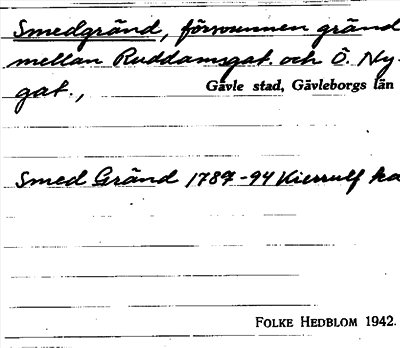 Smedgränd, försvunnen gränd
mellan Ruddamsgat. och Ö. Ny-
gat.,
Gävle stad, Gävleborgs län
Smed Gränd 1787-94 Kierrulf ka
FOLKE HEDBLOM 1942.